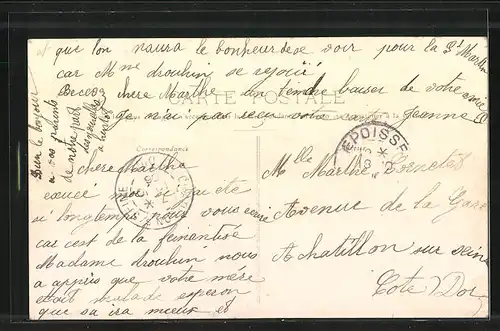 que l'on naura le bonheur de se voir pour la St Martin
car Mme drouhin se rejouï
Recevez chere Marthe un tendre baiser de votre amie
je n'ai pas reçu votre carte Jeanne
CARTE POSTALE
Bien le bonjour
a vos parents
de notre part
Correspondance
chere Marthe
excuse moi
si longtemps pour vous ecrire
car c'est de la feinantise
Madame drouhin nous
a appris que votre mére
etait malade esperon
que sa ira mieux et
EPOISSE
Melle Marthe
Avenue de la Gare
A chatillon sur seine
Cote D'or